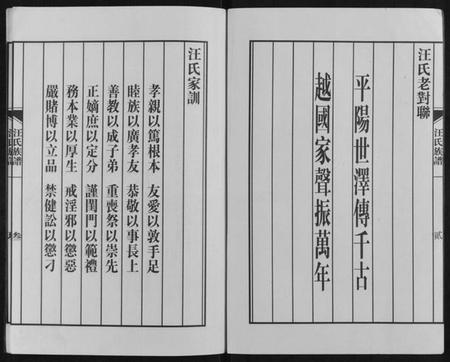 汪氏老對聯
平陽世澤傳千古
越國家聲振萬年
汪氏族譜
貳
汪氏家訓
孝親以篤根本　友愛以敦手足
睦族以廣孝友　恭敬以事長上
善教以成子弟　重喪祭以崇先
正嫡庶以定分　謹閨門以範禮
務本業以厚生　戒淫邪以懲惡
嚴賭博以立品　禁健訟以懲刁
汪氏族譜
叁